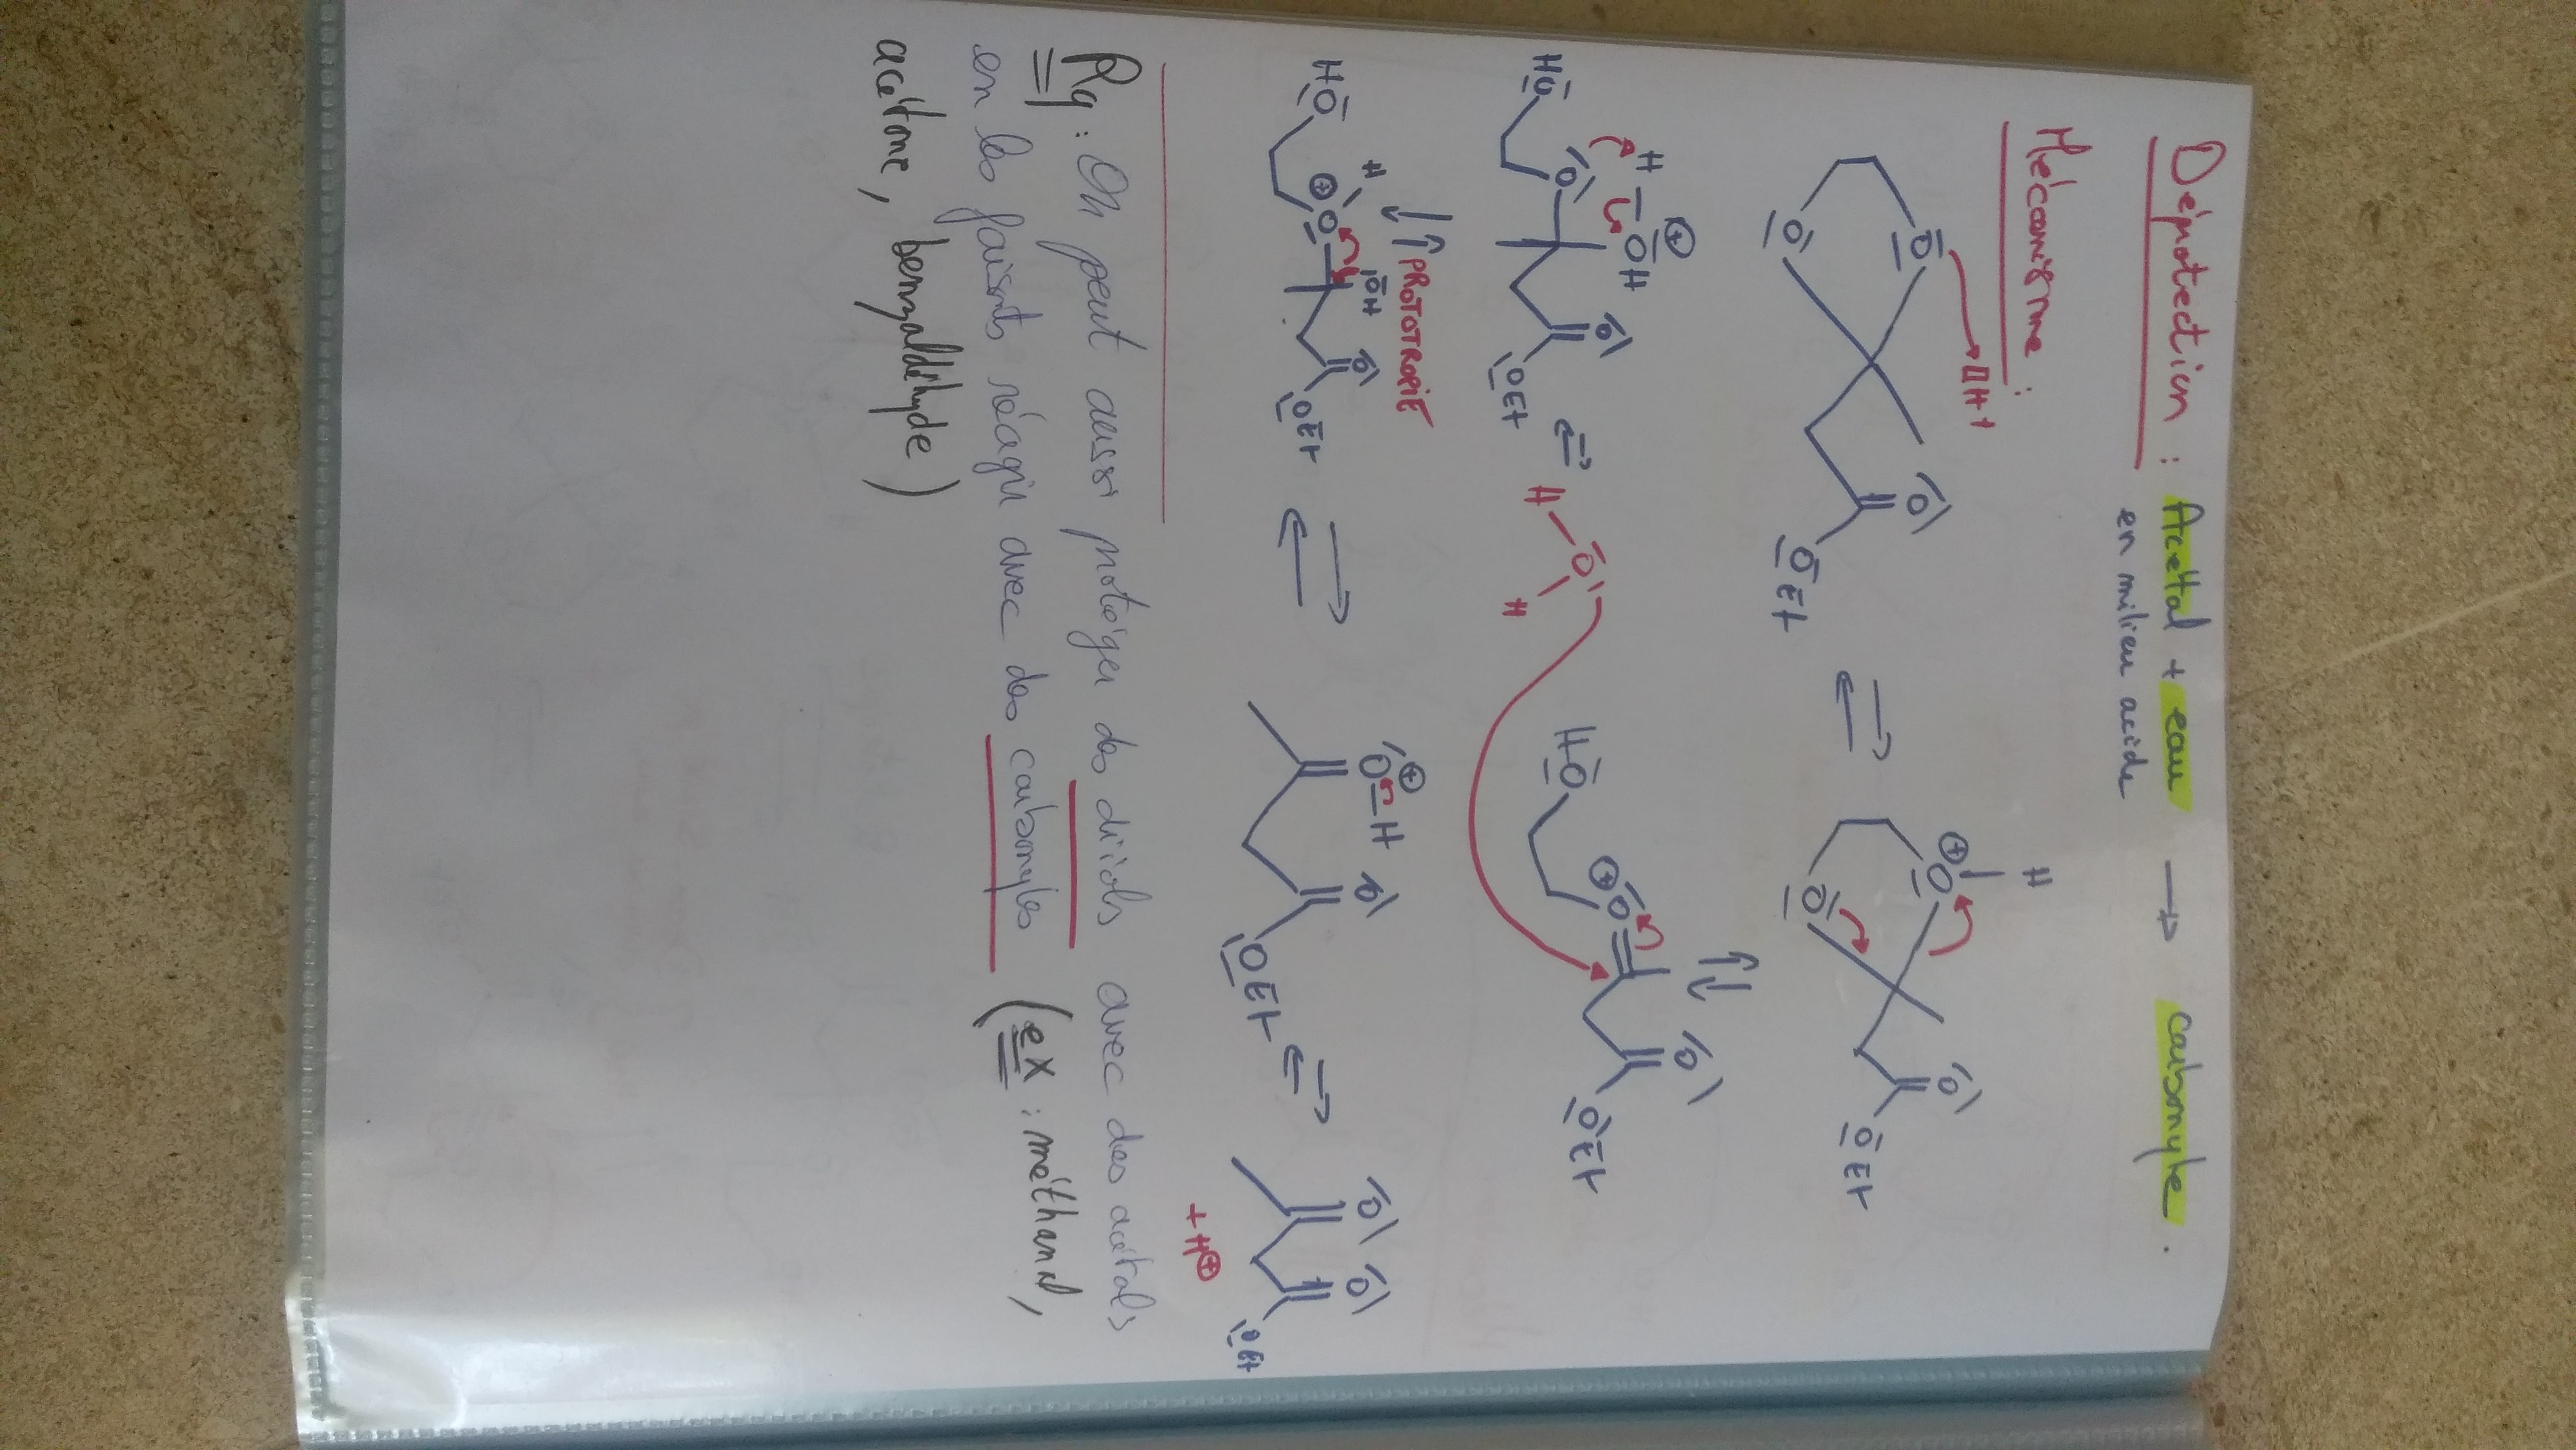 Déprotection : Acétal + eau → carbonyle.
en milieu acide
Mécanisme :
O H+ O O OEt
H ⊕ O O O OEt
HO O H OH ⊕ O OEt ⇌ H O H HO ⊕ O O OEt
PROTOTROPIE
HO ⊕ O H OH O OEt ⇌ ⊕ O H O OEt ⇌ O O OEt
+ H⊕
Rq : On peut aussi protéger des diols avec des acétals
en les faisant réagir avec des carbonyles (ex : méthanal,
acétone, benzaldéhyde)